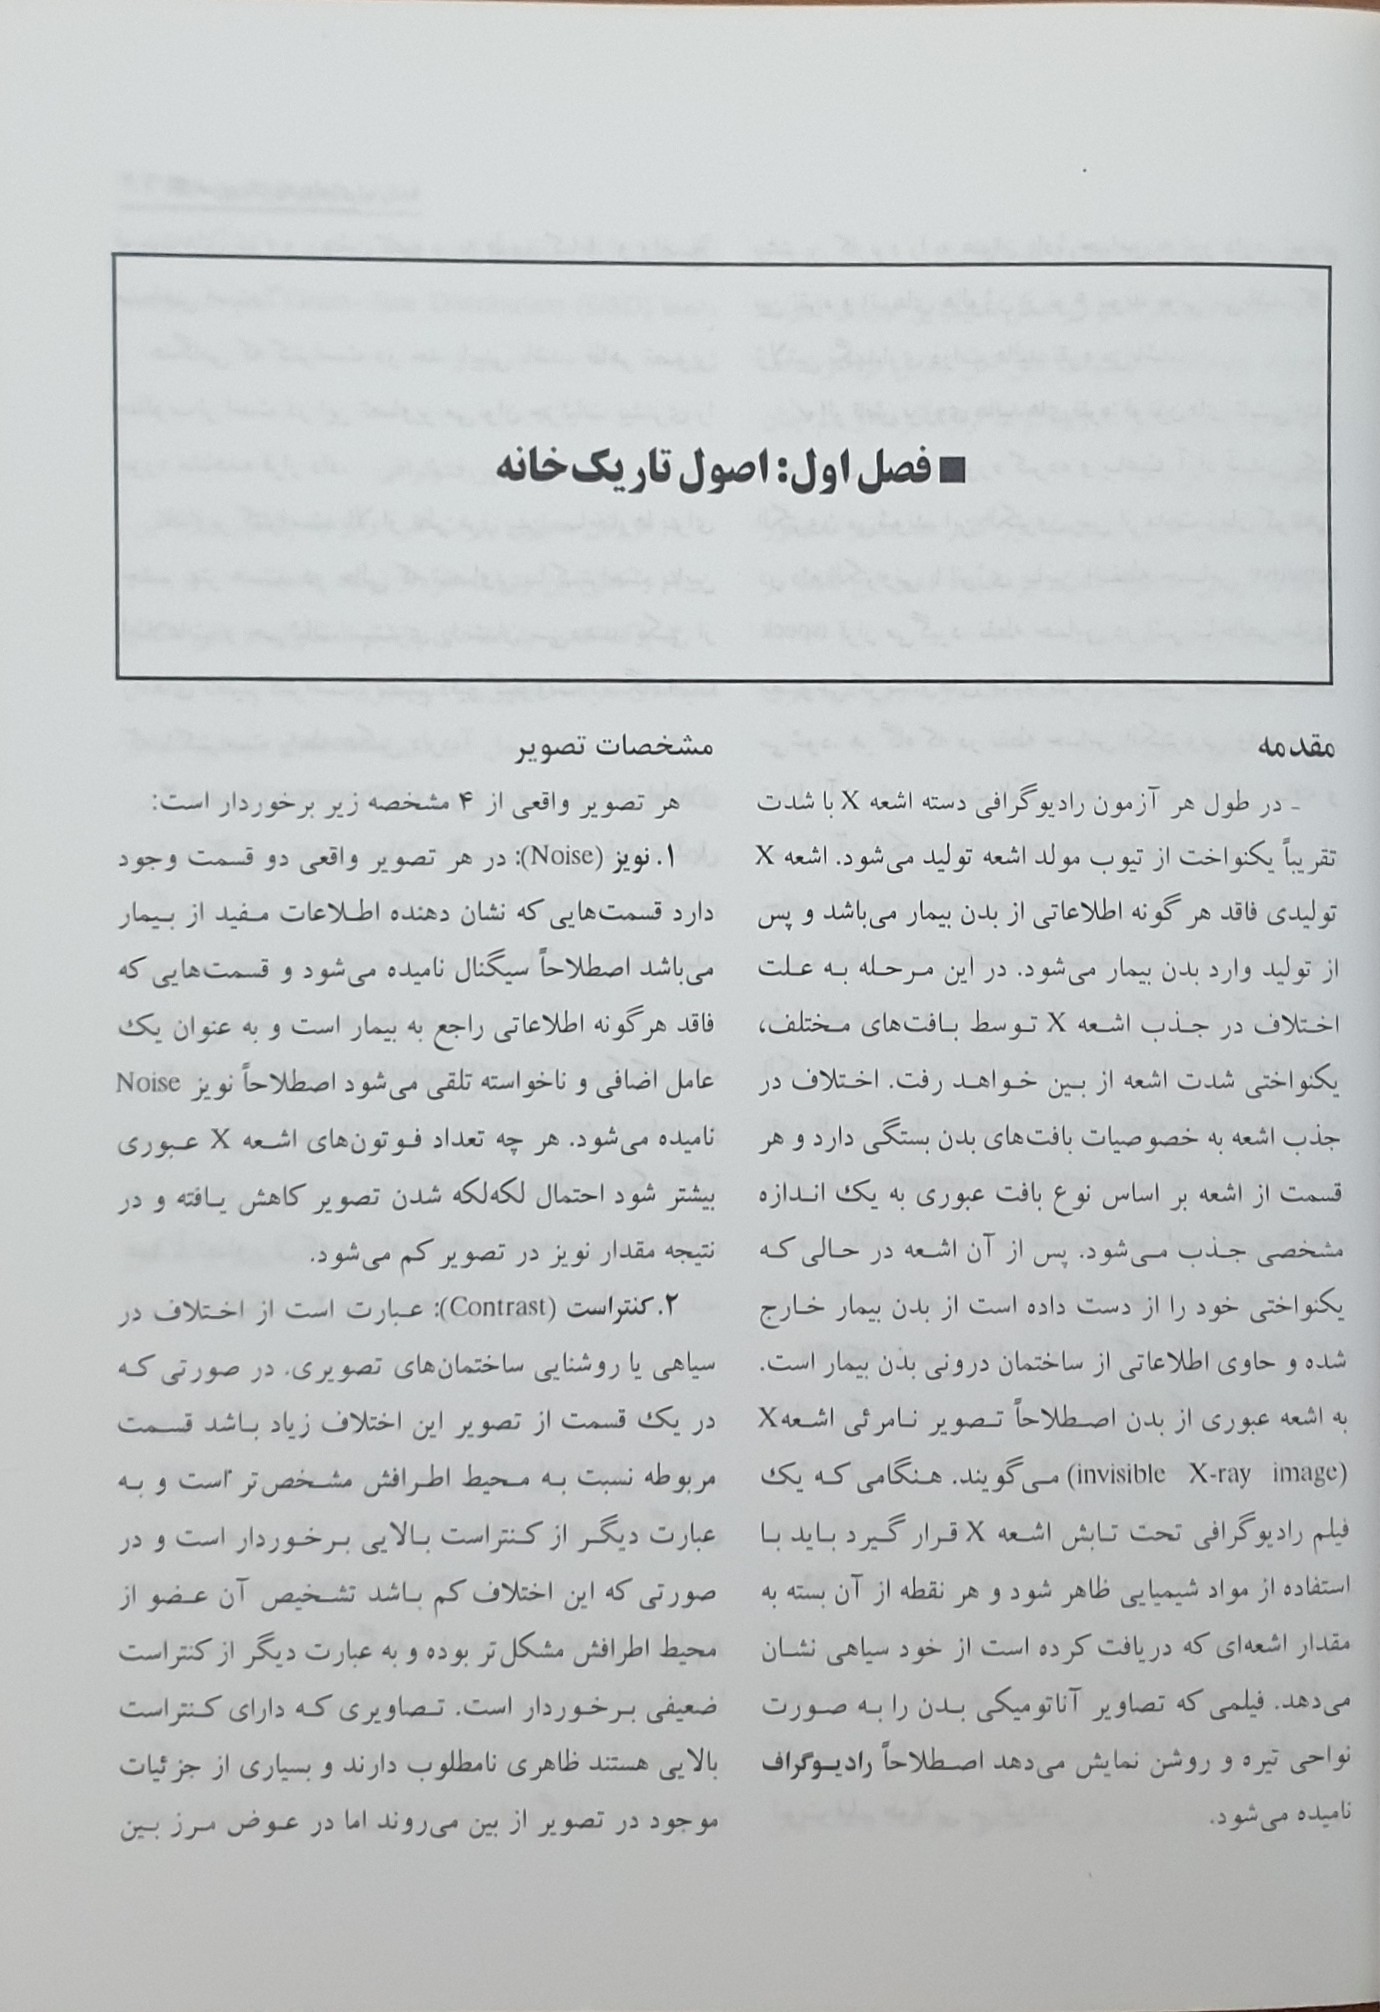 ■ فصل اول: اصول تاریک‌خانه
مقدمه
ـ در طول هر آزمون رادیوگرافی دسته اشعه X با شدت
تقریباً یکنواخت از تیوب مولد اشعه تولید می‌شود. اشعه X
تولیدی فاقد هر گونه اطلاعاتی از بدن بیمار می‌باشد و پس
از تولید وارد بدن بیمار می‌شود. در این مرحله به علت
اختلاف در جذب اشعه X توسط بافت‌های مختلف،
یکنواختی شدت اشعه از بین خواهد رفت. اختلاف در
جذب اشعه به خصوصیات بافت‌های بدن بستگی دارد و هر
قسمت از اشعه بر اساس نوع بافت عبوری به یک اندازه
مشخصی جذب می‌شود. پس از آن اشعه در حالی که
یکنواختی خود را از دست داده است از بدن بیمار خارج
شده و حاوی اطلاعاتی از ساختمان درونی بدن بیمار است.
به اشعه عبوری از بدن اصطلاحاً تصویر نامرئی اشعهX
(invisible X-ray image) می‌گویند. هنگامی که یک
فیلم رادیوگرافی تحت تابش اشعه X قرار گیرد باید با
استفاده از مواد شیمیایی ظاهر شود و هر نقطه از آن بسته به
مقدار اشعه‌ای که دریافت کرده است از خود سیاهی نشان
می‌دهد. فیلمی که تصاویر آناتومیکی بدن را به صورت
نواحی تیره و روشن نمایش می‌دهد اصطلاحاً رادیوگراف
نامیده می‌شود.
مشخصات تصویر
هر تصویر واقعی از ۴ مشخصه زیر برخوردار است:
۱. نویز (Noise): در هر تصویر واقعی دو قسمت وجود
دارد قسمت‌هایی که نشان دهنده اطلاعات مفید از بیمار
می‌باشد اصطلاحاً سیگنال نامیده می‌شود و قسمت‌هایی که
فاقد هرگونه اطلاعاتی راجع به بیمار است و به عنوان یک
عامل اضافی و ناخواسته تلقی می‌شود اصطلاحاً نویز Noise
نامیده می‌شود. هر چه تعداد فوتون‌های اشعه X عبوری
بیشتر شود احتمال لکه‌لکه شدن تصویر کاهش یافته و در
نتیجه مقدار نویز در تصویر کم می‌شود.
۲. کنتراست (Contrast): عبارت است از اختلاف در
سیاهی یا روشنایی ساختمان‌های تصویری. در صورتی که
در یک قسمت از تصویر این اختلاف زیاد باشد قسمت
مربوطه نسبت به محیط اطرافش مشخص‌تر است و به
عبارت دیگر از کنتراست بالایی برخوردار است و در
صورتی که این اختلاف کم باشد تشخیص آن عضو از
محیط اطرافش مشکل‌تر بوده و به عبارت دیگر از کنتراست
ضعیفی برخوردار است. تصاویری که دارای کنتراست
بالایی هستند ظاهری نامطلوب دارند و بسیاری از جزئیات
موجود در تصویر از بین می‌روند اما در عوض مرز بین